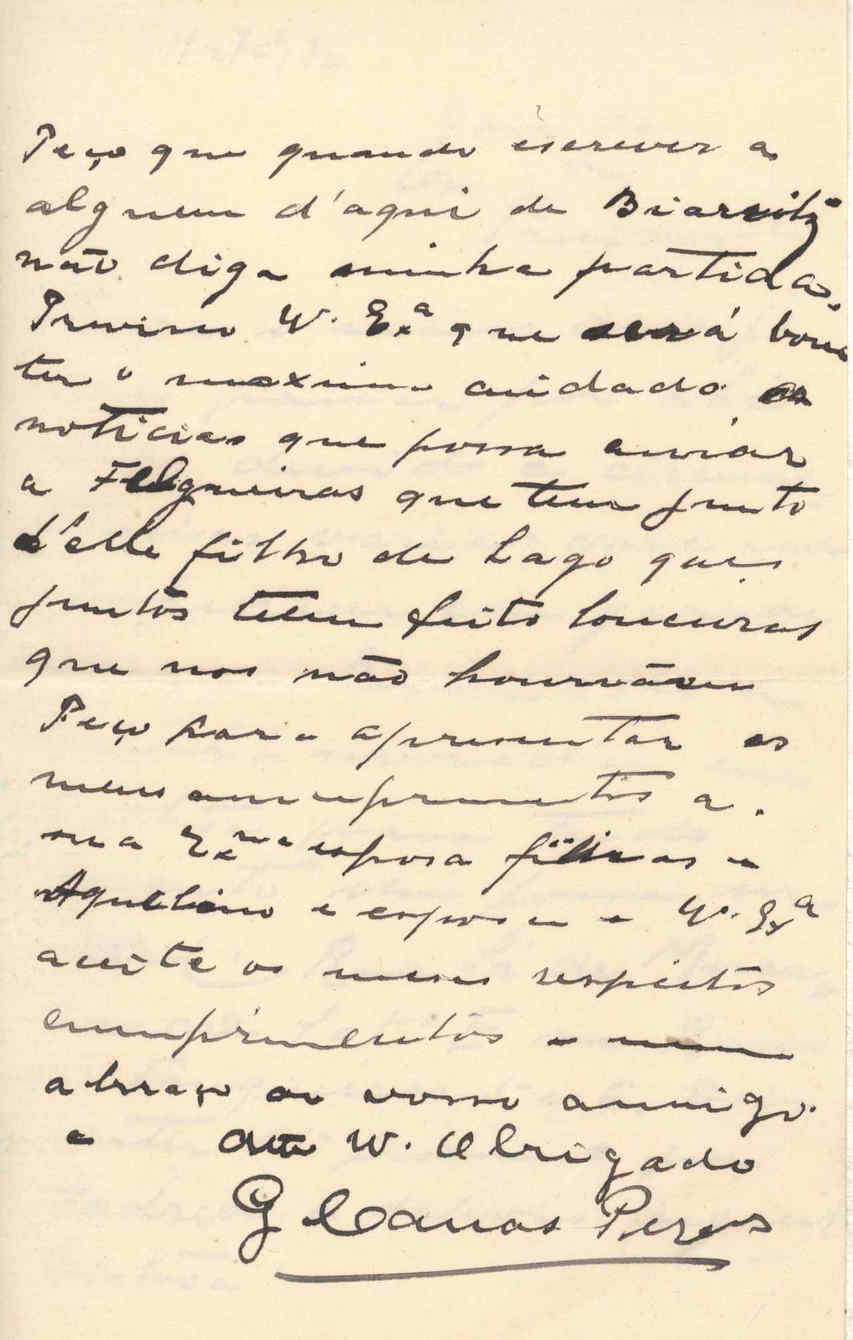 Peço que quando escrever a
alguem d'aqui de Biarritz
não diga minha partida.
Previno V. Exª que será bom
ter o maximo cuidado as
noticias que possa enviár
a Felgueiras que tem junto
d'elle filho de Lago que
juntos teem feito loucuras
que nos não houravam
Peço para apresentar os
meus cumprimentos a
sua Exma esposa filhas e
Aquelino e esposa e V. Exª
aceite os meus respeitos
cumprimentos e um
abraço do vosso amigo
e Att V. Obrigado
G Canas Peres